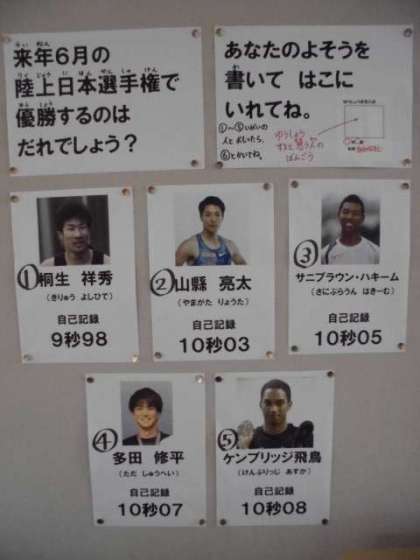 来年6月の
らいねん がつ
陸上日本選手権で
りくじょうにほんせんしゅけん
優勝するのは
ゆうしょう
だれでしょう?
あなたのよそうを
書いて はこに
か
いれてね。
①~⑤いがいの
人とおもったら、
⑥とかいてね。
ゆうしょう
すると思う人の
ばんごう
①
桐生 祥秀
(きりゅう よしひで)
自己記録
9秒98
②
山縣 亮太
(やまがた りょうた)
自己記録
10秒03
③
サニブラウン ハキーム
(さにぶらうん はきーむ)
自己記録
10秒05
④
多田 修平
(ただ しゅうへい)
自己記録
10秒07
⑤
ケンブリッジ飛鳥
(けんぶりっじ あすか)
自己記録
10秒08